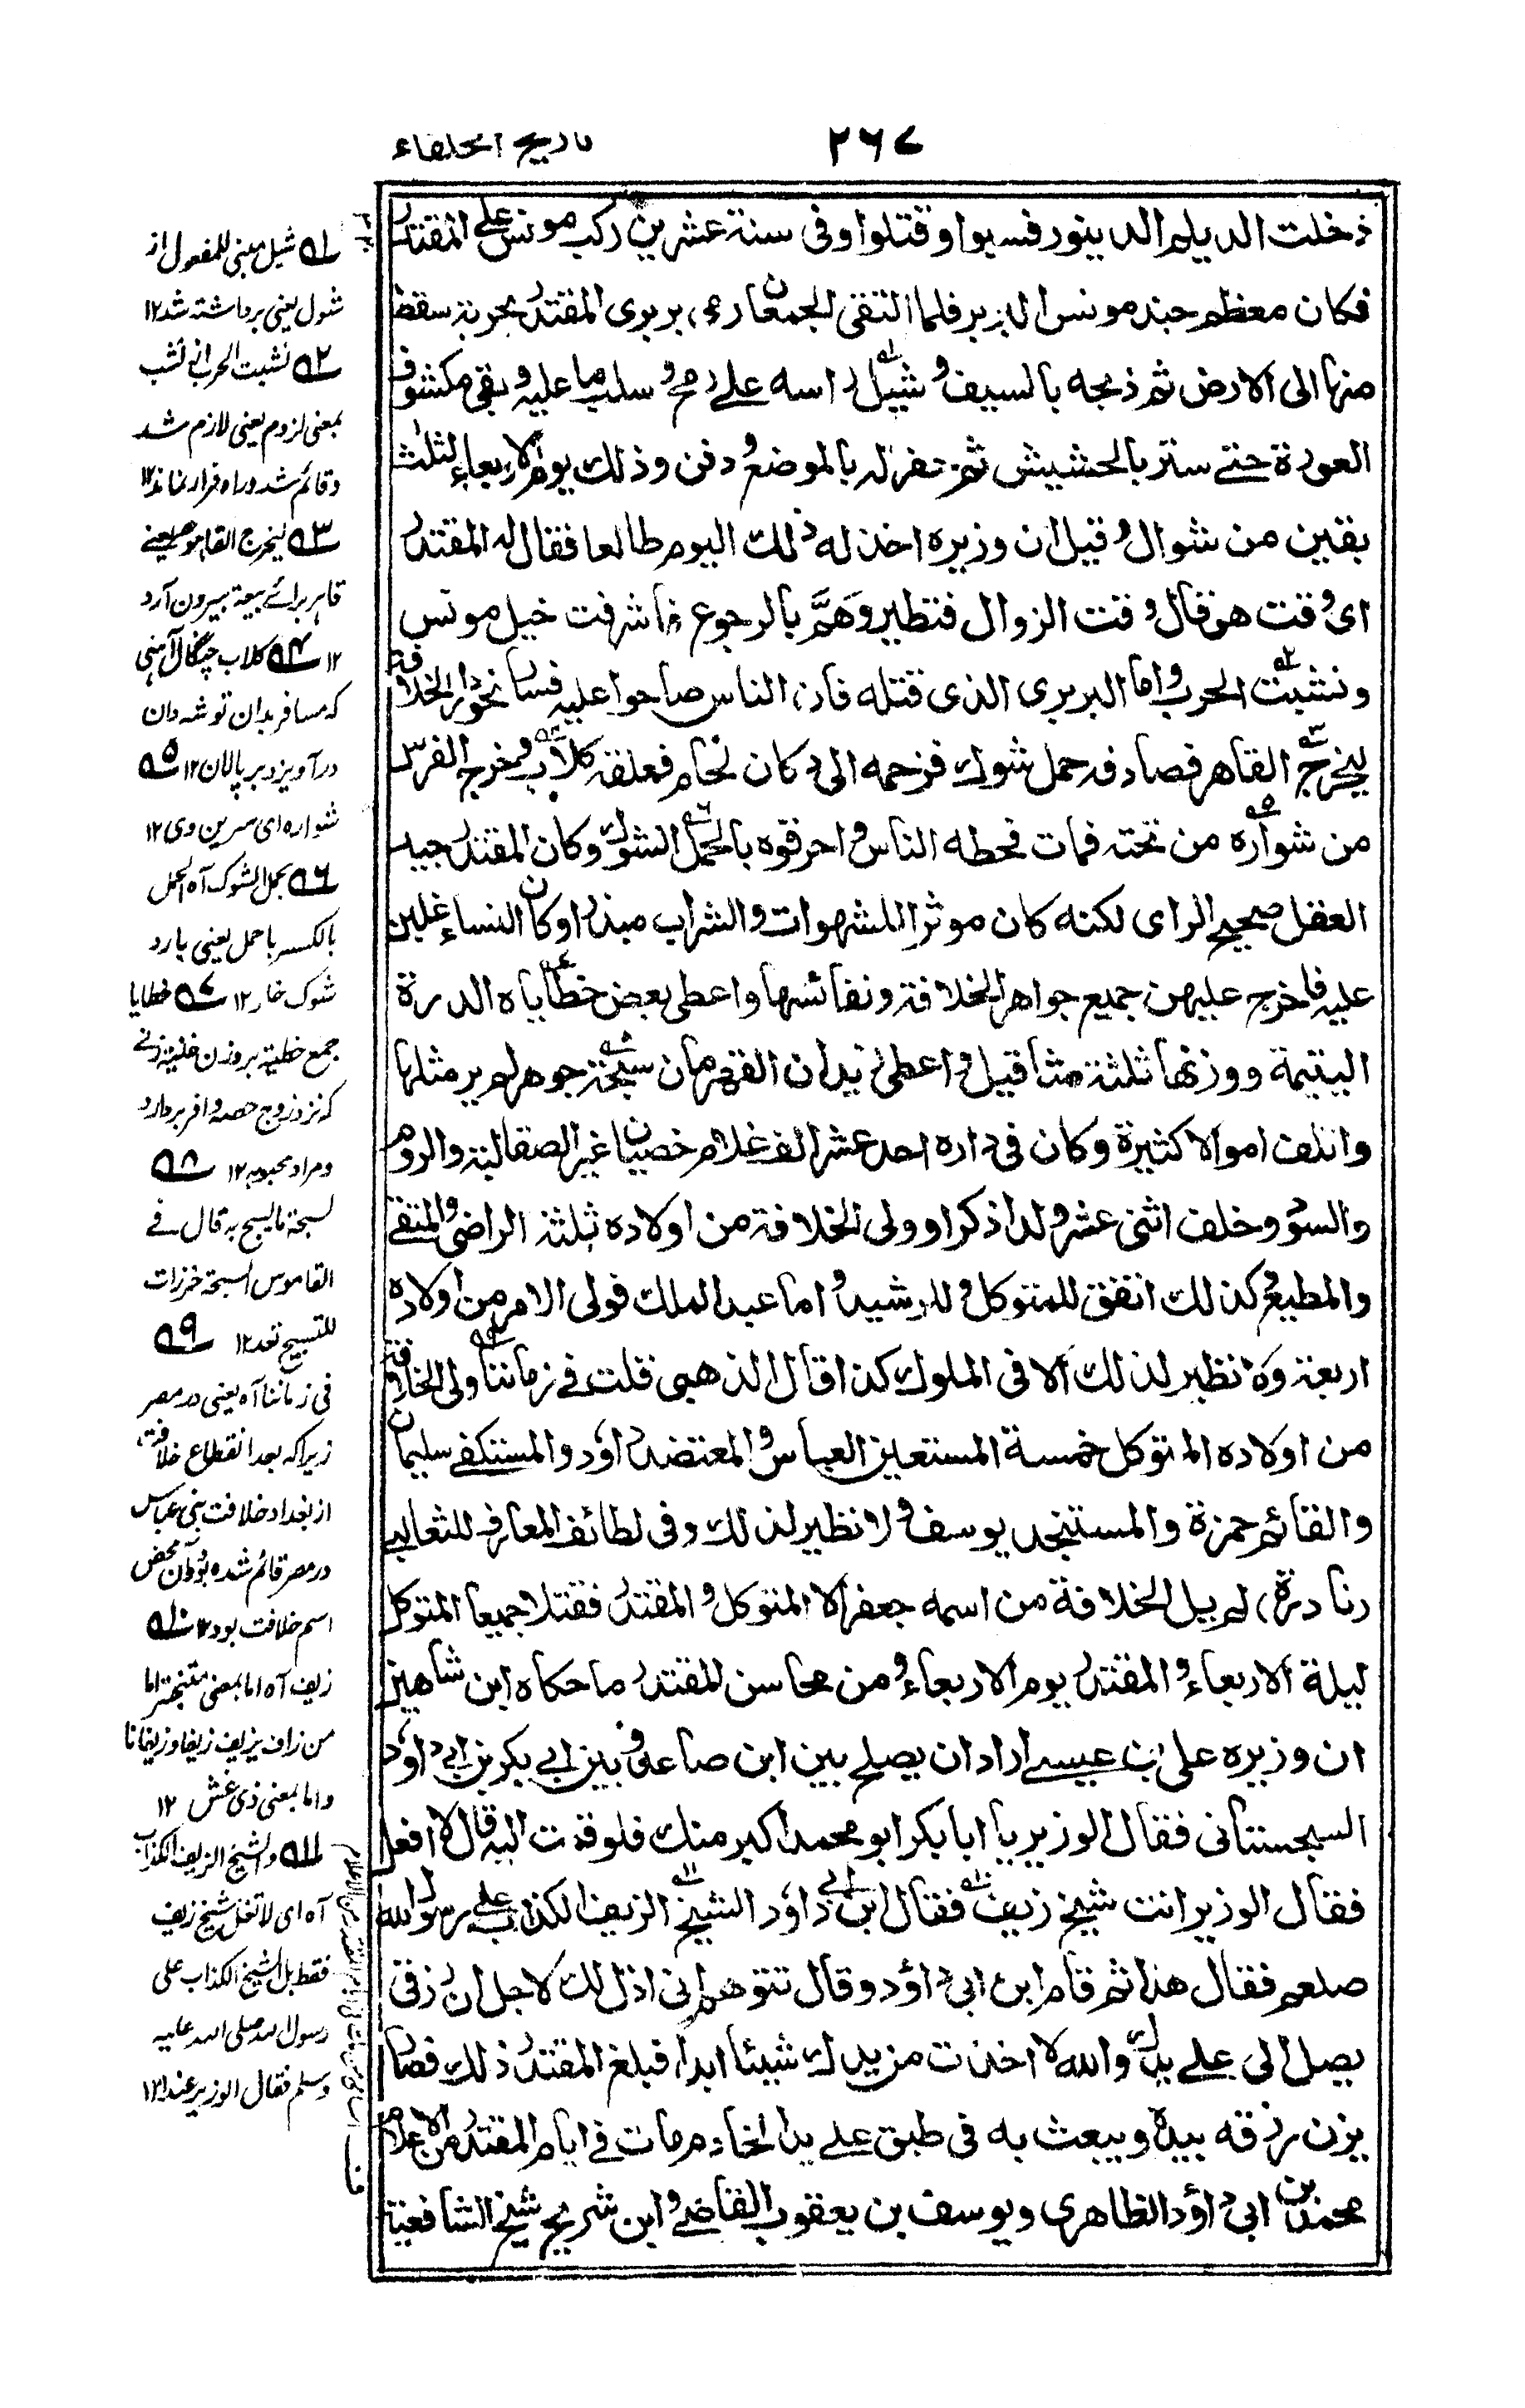 ٢٦٧
تاريخ الخلفاء
دخلت الديلم الدينور فسبوا وقتلوا وفى سنة عشرين ركب مونس على المقتدر
فكان معظم جند مونس البربر فلما التقى الجمعان رمى بربرى المقتدر بحربة سقط
منها الى الارض ثم ذبحه بالسيف و شيل راسه على رمح و سلب ما عليه و بقى مكشوف
العورة حتى ستر بالحشيش ثم حفر له بالموضع و دفن وذلك يوم الاربعاء لثلث
بقين من شوال و قيل ان وزيره اخذ له ذلك اليوم طالعا فقال له المقتدر
اى وقت هو قال وقت الزوال فتطير وَهَمَّ بالرجوع فاشرفت خيل مونس
ونشبت الحرب و اما البربرى الذى قتله فان الناس صاحوا عليه فسار نحو دار الخلافة
ليخرج القاهر فصادفه حمل شوك فزحمه الى دكان لحام فعلقه كلاب و خرج الفرس
من شواره من تحته فمات فحطه الناس و احرقوه بالحمل الشوك وكان المقتدر جيد
العقل صحيح الراى لكنه كان موثرا للشهوات و الشراب مبذرا وكان النساء غلبن
عليه فاخرج عليهن جميع جواهر الخلافة ونفائسها واعطى بعض خطاياه الدرة
اليتيمة ووزنها ثلثة مثاقيل و اعطى زيدان القهرمان سبحة جوهر لم ير مثلها
واتلف اموالا كثيرة وكان فى داره احد عشر الف غلام خصيان غير الصقالبة والروم
والسود وخلف اثنى عشر ولدا ذكرا وولى الخلافة من اولاده ثلثة الراضى و المتقى
والمطيع و كذلك اتفق للمتوكل و للرشيد و اما عبد الملك فولى الامر من اولاده
اربعة ولا نظير لذلك الا فى الملوك كذا قال الذهبى قلت فى زماننا ولى الخلافة
من اولاده المتوكل خمسة المستعين العباس و المعتضد داؤد والمستكفى سليمان
والقائم حمزة والمستنجد يوسف و لا نظير لذلك وفى لطائف المعارف للثعالبى
(نادرة) لم يل الخلافة من اسمه جعفر الا المتوكل و المقتدر فقتلا جميعا المتوكل
ليلة الاربعاء و المقتدر يوم الاربعاء و من محاسن المقتدر ما حكاه ابن شاهين
ان وزيره على بن عيسى اراد ان يصلح بين ابن صاعد و بين ابى بكر بن ابى داؤد
السجستانى فقال الوزير يا ابا بكر ابو محمد اكبر منك فلو قمت اليه قال لا افعل
فقال الوزير انت شيخ زيف فقال ابن ابى داؤد الشيخ الزيف الكذاب على رسول الله
صلعم فقال هذا ثم قام ابن ابى داؤد وقال تتوهم انى اذل لك لاجل ان رزقى
يصل الى على يدك والله لا اخذت من يدك شيئا ابدا فبلغ المقتدر ذلك فصار
يزن رزقه بيده ويبعث به فى طبق على يد الخادم مات فى ايام المقتدر من الاعلام
محمد بن ابى داؤد الظاهرى ويوسف بن يعقوب القاضى و ابن شريح شيخ الشافعية
١ شيل مبنى للمفعول از
شول يعنى برداشته شد ١٢
٢ نشبت الحرب اى نشب
بمعنى لزوم يعنى لازم شد
و قائم شد و راه فرار نماند ١٢
٣ ليخرج القاهر يعنى
قاهر برائے بيعة بيرون آرد
١٢ ٤ كلاب چنگال آهنى
كه مسافر بدان توشه دان
در آويزد بر پالان ١٢ ٥
شواره اى سرين وى ١٢
٦ بحمل الشوك آه الحمل
بالكسر با حمل يعنى بارد
شوك خار ١٢ ٧ خطايا
جمع خطية بروزن خلية زنے
كه نزد زوج حصه وافر بردارد
ومراد محبوبه ١٢ ٨
سبحة ما يسبح به قال فى
القاموس السبحة خرزات
للتسبيح تعد ١٢ ٩
فى زماننا آه يعنى در مصر
زيرا كه بعد انقطاع خلافت
از بغداد خلافت بنى عباس
در مصر قائم شده بود و آن محض
اسم خلافت بود ١٢ ١٠
زيف آه اما بمعنى متبختر اما
من زاف يزيف زيفا وزيفانا
واما بمعنى ذى غش ١٢
١١ والشيخ الزيف الكذاب
آه اى لا تقل شيخ زيف
فقط بل الشيخ الكذاب على
رسول الله صلى الله عليه
وسلم فقال الوزير عند ١٢